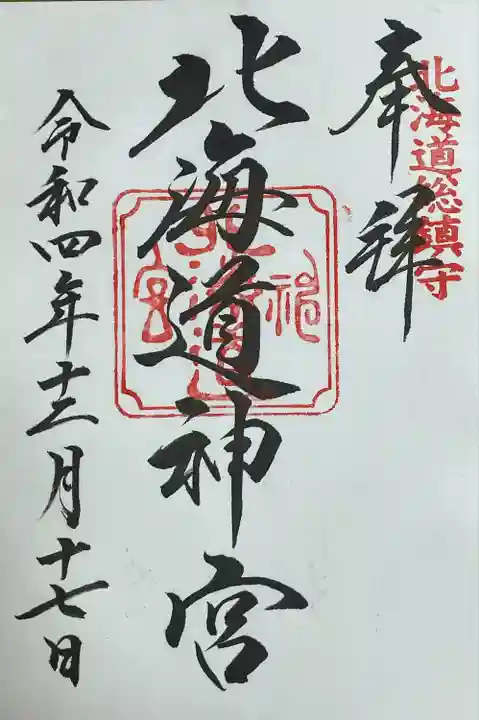 北海道総鎮守
奉拝
北海道神宮
令和四年十二月十七日